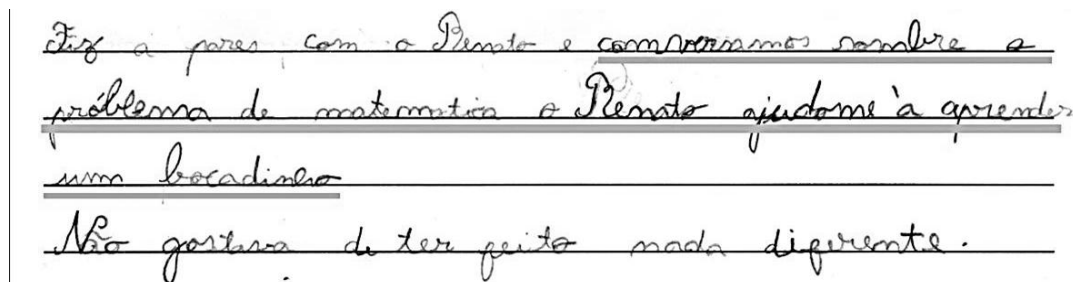 Fiz a pares com o Renato e comversamos sombre o
próblema de matematica o Renato ajudome à aprender
um bocadinho
Não gostava de ter feito nada diferente.